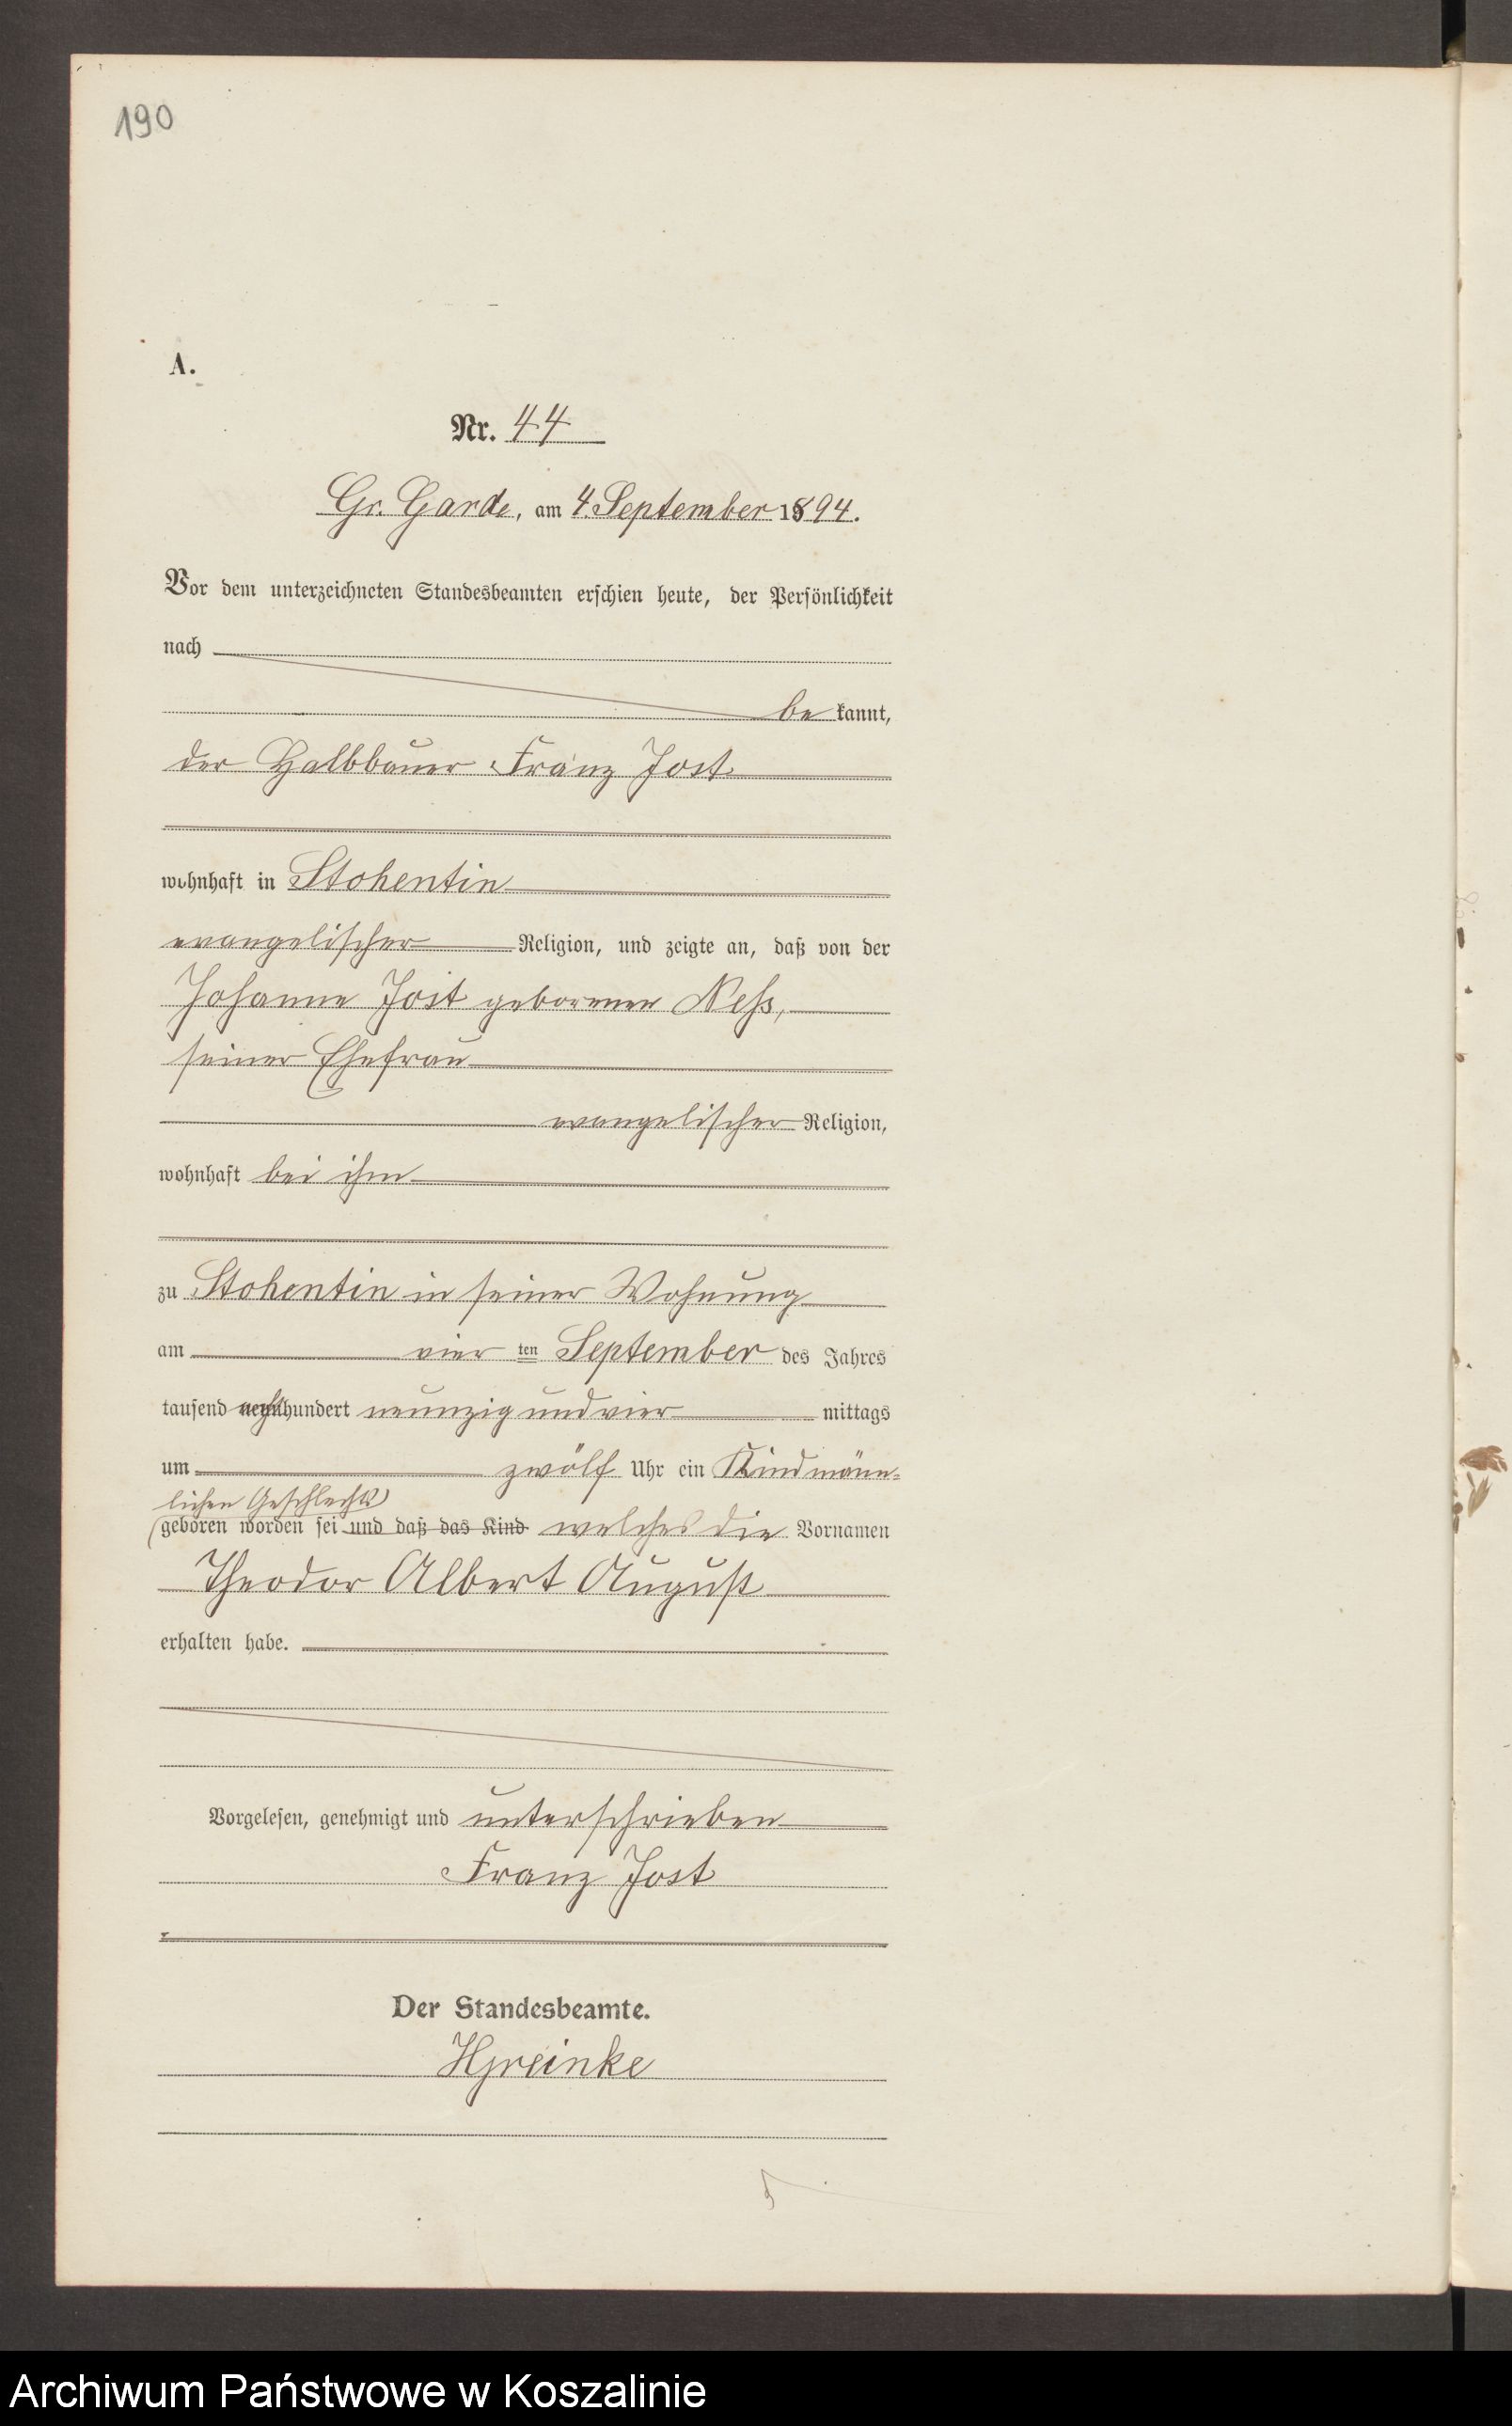 190
A.
Nr. 44
Gr. Garde, am 4. September 1894.
Vor dem unterzeichneten Standesbeamten erschien heute, der Persönlichkeit
nach
be kannt,
der Halbbauer Franz Jost
wohnhaft in Stohentin
evangelischer Religion, und zeigte an, daß von der
Johanne Jost geborenen Neß,
seiner Ehefrau
evangelischer Religion,
wohnhaft bei ihm
zu Stohentin in seiner Wohnung
am vier ten September des Jahres
tausend acht hundert neunzig und vier mittags
um zwölf Uhr ein Kind männ=
lichen Geschlechts
geboren worden sei und daß das Kind welches die Vornamen
Theodor Albert August
erhalten habe.
Vorgelesen, genehmigt und unterschrieben
Franz Jost
Der Standesbeamte.
HGreinke
Archiwum Państwowe w Koszalinie